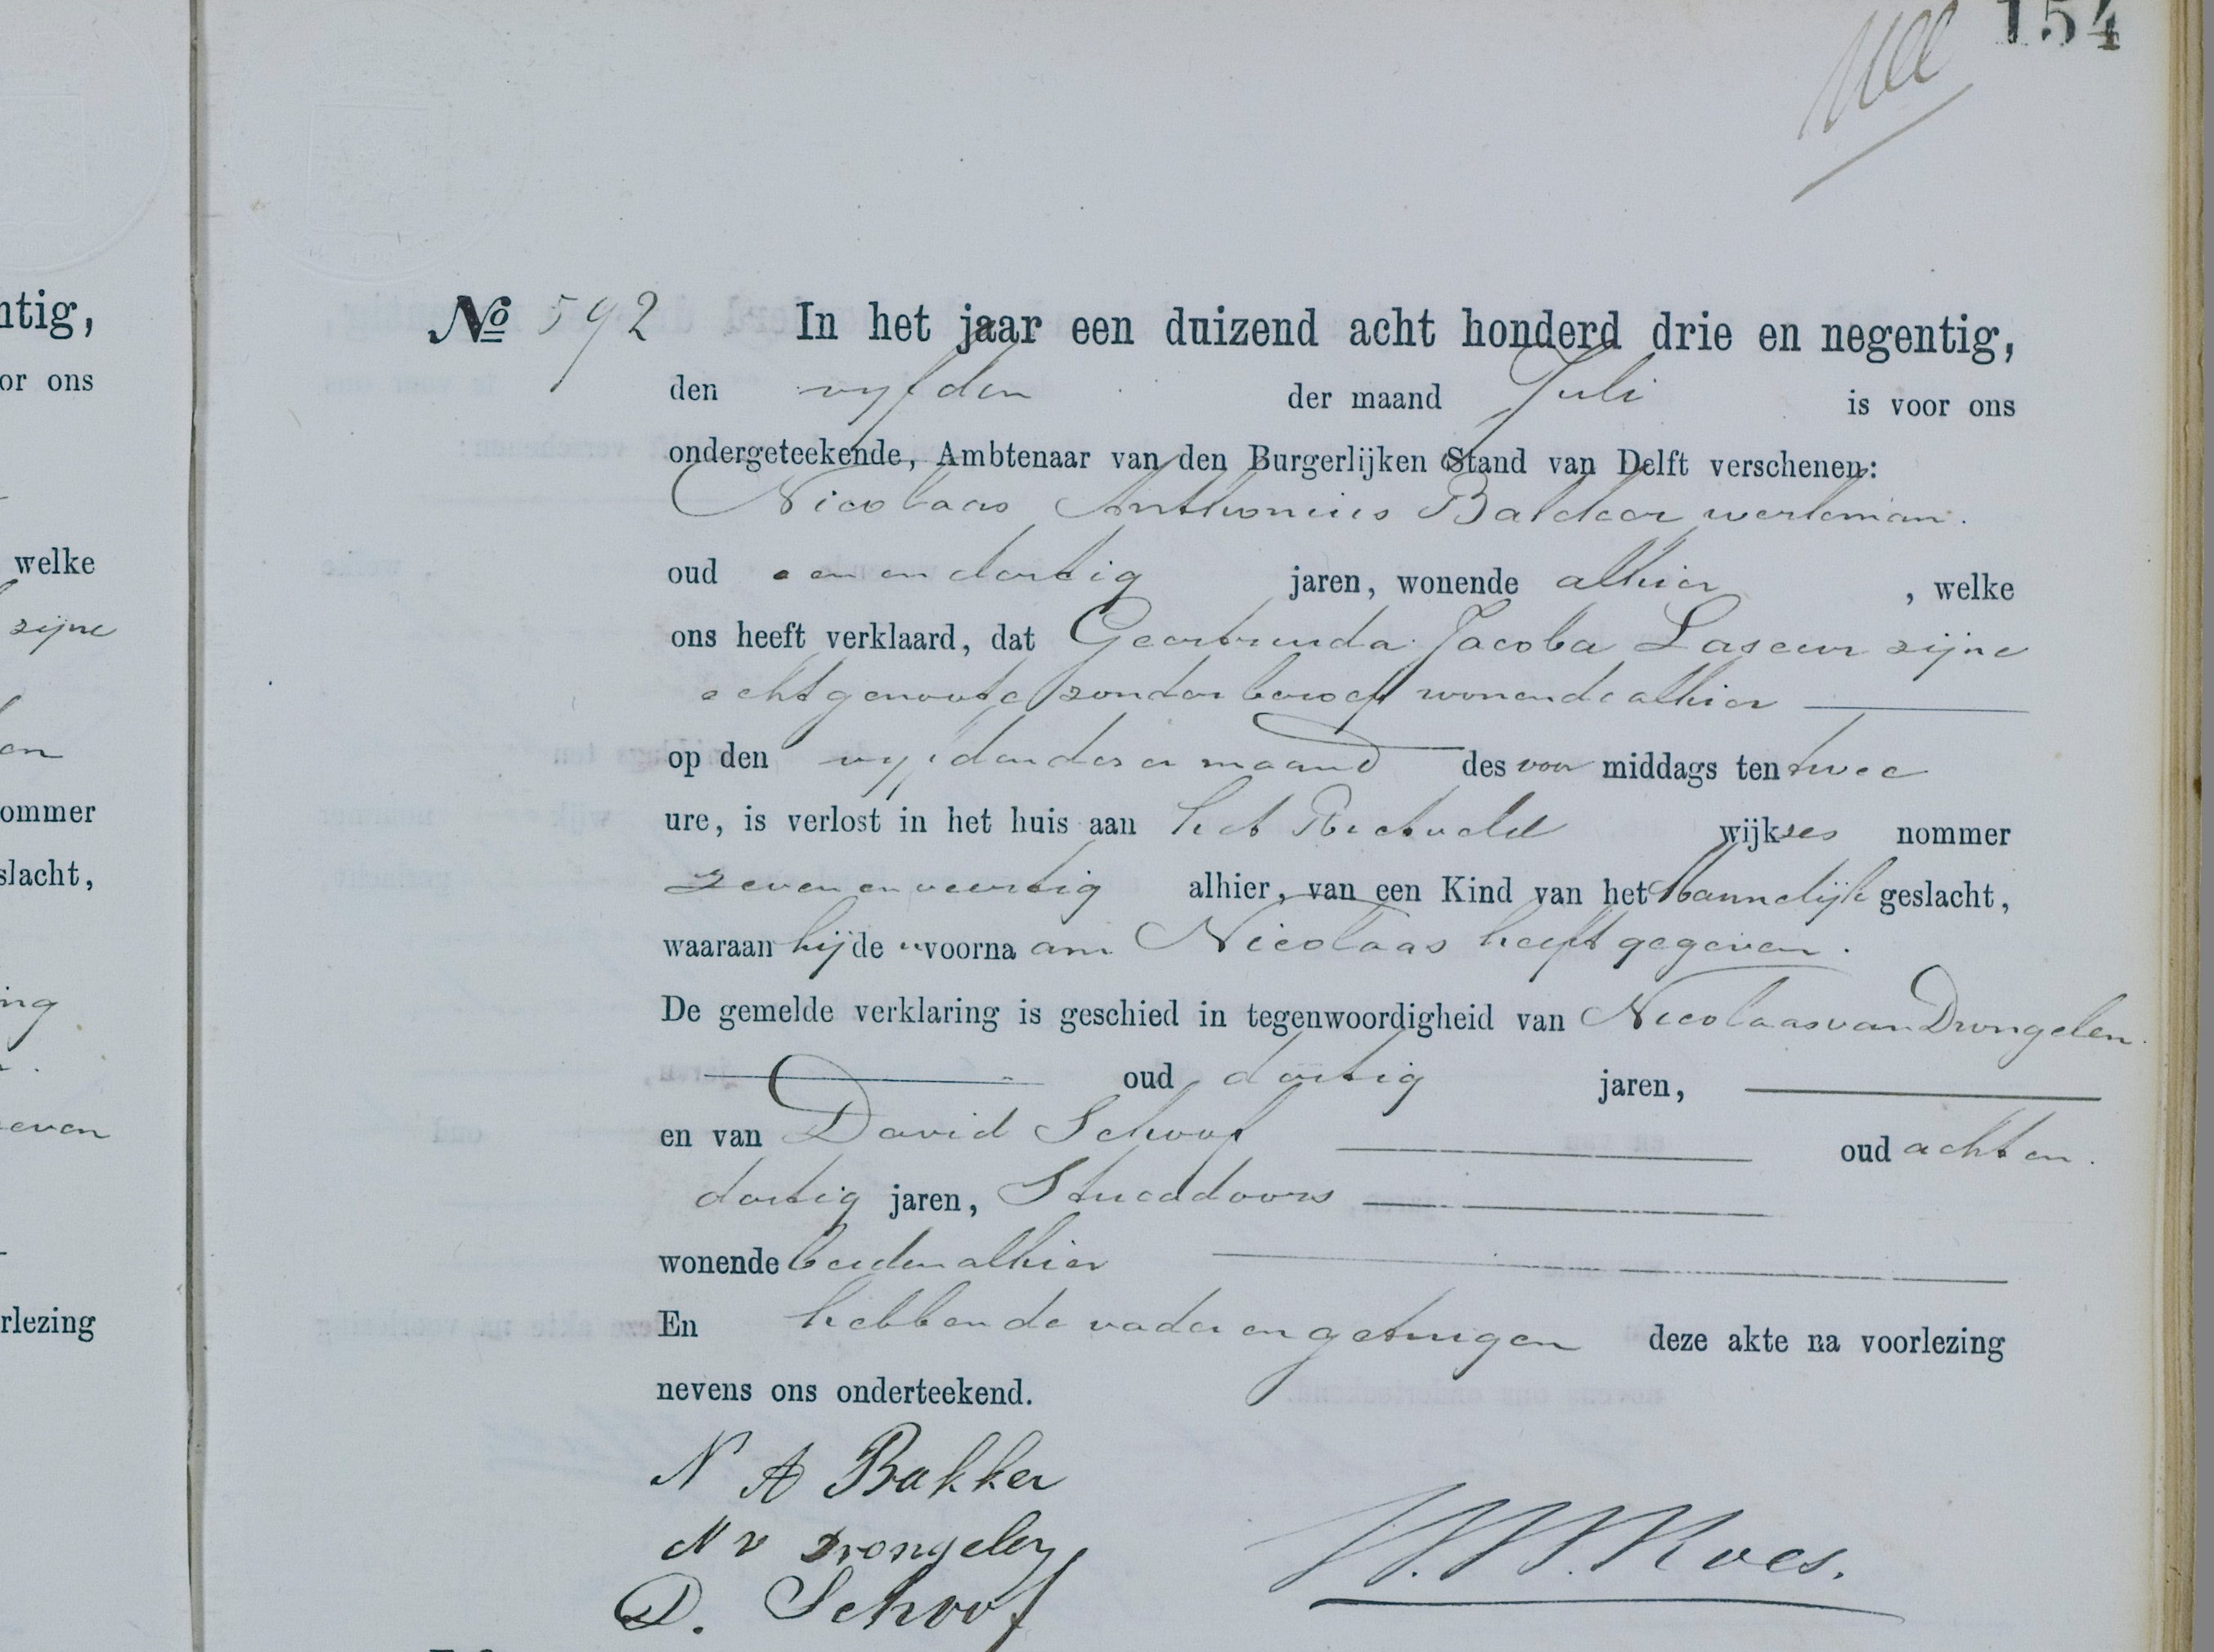 154
ntig,
or ons
welke
zijne
en
ommer
slacht,
ing
even
rlezing
No 592 In het jaar een duizend acht honderd drie en negentig,
den vijfden der maand Juli is voor ons
ondergeteekende, Ambtenaar van den Burgerlijken Stand van Delft verschenen:
Nicolaas Anthonius Bakker werkman.
oud een en dertig jaren, wonende alhier, welke
ons heeft verklaard, dat Geertruida Jacoba Laseur zijne
echtgenoote zonder beroep wonende alhier
op den vijfden dezer maand des voor middags ten twee
ure, is verlost in het huis aan het Rietveld wijk zes nommer
zeven en veertig alhier, van een Kind van het Mannelijk geslacht,
waaraan hij de n voorna am Nicolaas heeft gegeven.
De gemelde verklaring is geschied in tegenwoordigheid van Nicolaas van Drongelen
oud dertig jaren,
en van David Schoof oud acht en
dertig jaren, Stucadoors
wonende beiden alhier
En hebben de vader en getuigen deze akte na voorlezing
nevens ons onderteekend.
N A Bakker
N v Drongelen
D. Schoof